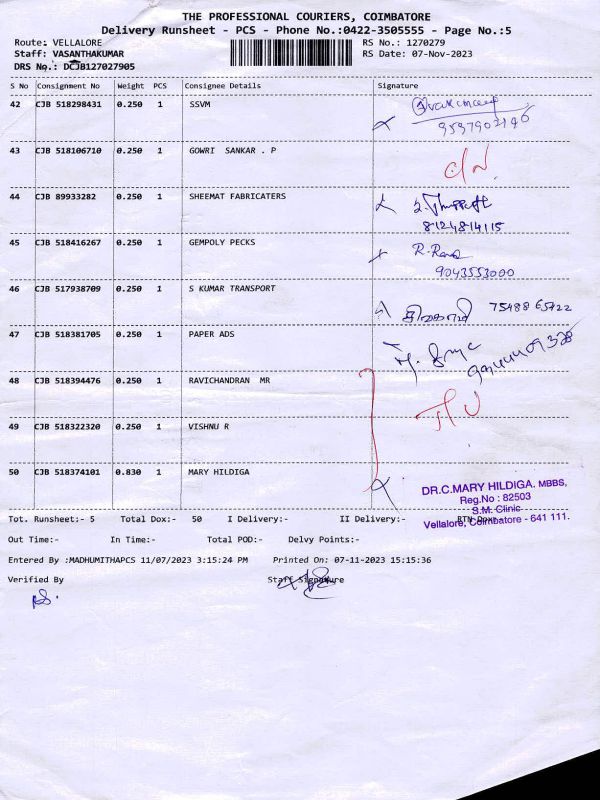 THE PROFESSIONAL COURIERS, COIMBATORE
Delivery Runsheet - PCS - Phone No.:0422-3505555 - Page No.:5
Route: VELLALORE RS No.: 1270279
Staff: VASANTHAKUMAR RS Date: 07-Nov-2023
DRS No.: DCJB127027905
S No Consignment No Weight PCS Consignee Details Signature
42 CJB 518298431 0.250 1 SSVM
43 CJB 518106710 0.250 1 GOWRI SANKAR . P
44 CJB 89933282 0.250 1 SHEEMAT FABRICATERS
8124814115
45 CJB 518416267 0.250 1 GEMPOLY PECKS
9043553000
46 CJB 517938709 0.250 1 S KUMAR TRANSPORT
47 CJB 518381705 0.250 1 PAPER ADS
48 CJB 518394476 0.250 1 RAVICHANDRAN MR
49 CJB 518322320 0.250 1 VISHNU R
50 CJB 518374101 0.830 1 MARY HILDIGA
DR.C.MARY HILDIGA. MBBS,
Reg.No : 82503
S.M. Clinic
Vellalore, Coimbatore - 641 111.
Tot. Runsheet:- 5 Total Dox:- 50 I Delivery:- II Delivery:-
Out Time:- In Time:- Total POD:- Delvy Points:-
Entered By :MADHUMITHAPCS 11/07/2023 3:15:24 PM Printed On: 07-11-2023 15:15:36
Verified By Staff Signature